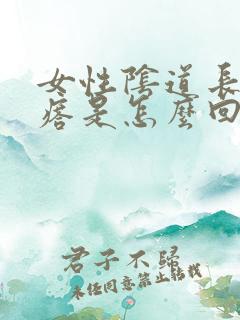 女性陰道長
瘩是怎麼回
君子不歸
未經同意禁止轉載